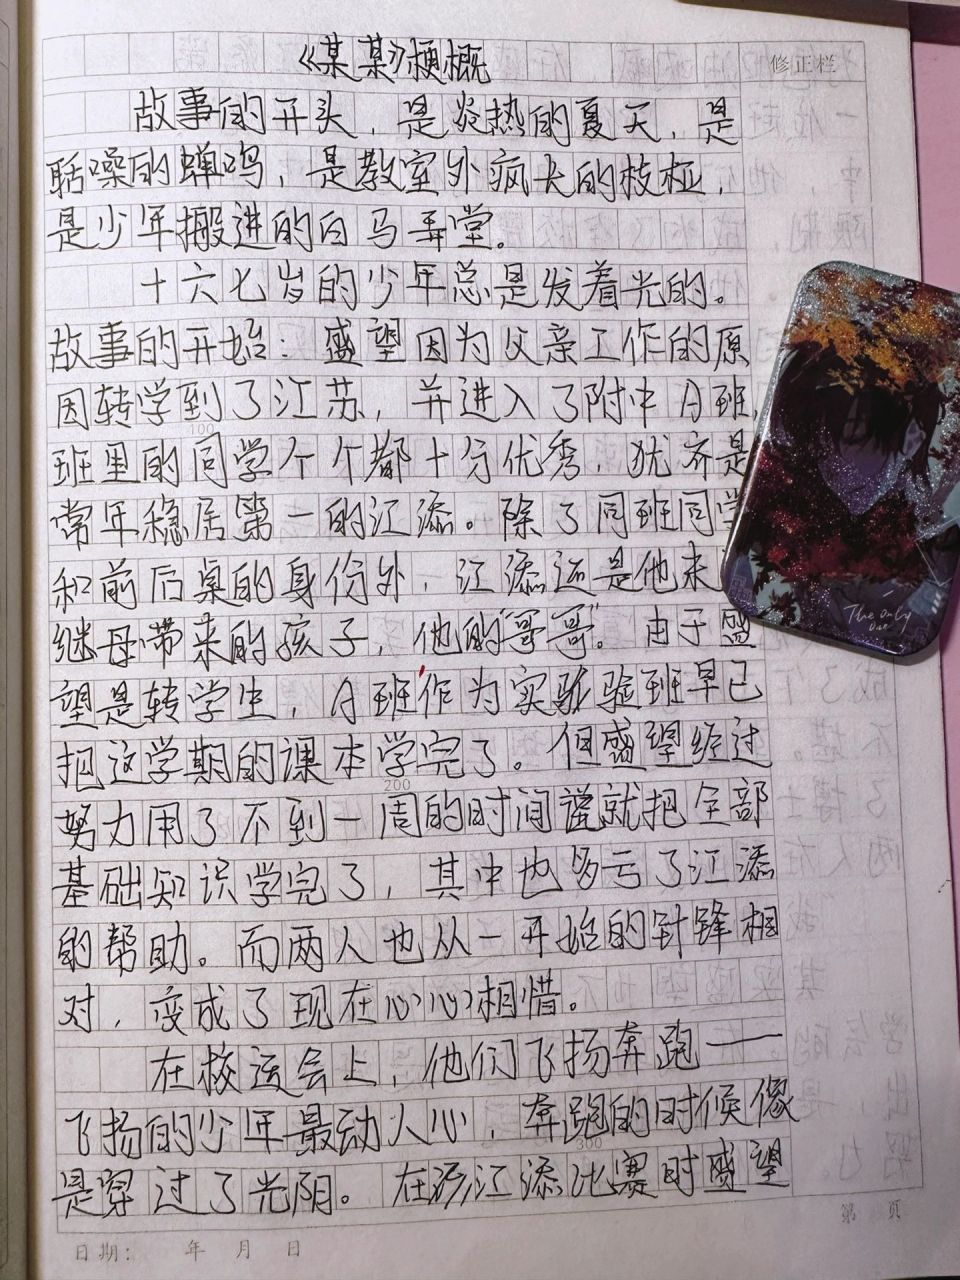 《某某》梗概
修正栏
故事的开头，是炎热的夏天，是
聒噪的蝉鸣，是教室外疯长的枝桠，
是少年搬进的白马弄堂。
十六七岁的少年总是发着光的。
故事的开始：盛望因为父亲工作的原
因转学到了江苏，并进入了附中A班，
班里的同学个个都十分优秀，犹齐是
常年稳居第一的江添。除了同班同学
和前后桌的身份外，江添还是他未
继母带来的孩子，他的“哥哥”。由于盛
望是转学生，A班作为实验班早已
把这学期的课本学完了。但盛望经过
努力用了不到一周的时间就把全部
基础知识学完了，其中也多亏了江添
的帮助。而两人也从一开始的针锋相
对，变成了现在心心相惜。
在校运会上，他们飞扬奔跑——
飞扬的少年最动人心，奔跑的时候像
是穿过了光阴。在江添比赛时盛望
100
200
300
The Only
One
第 页
日期： 年 月 日